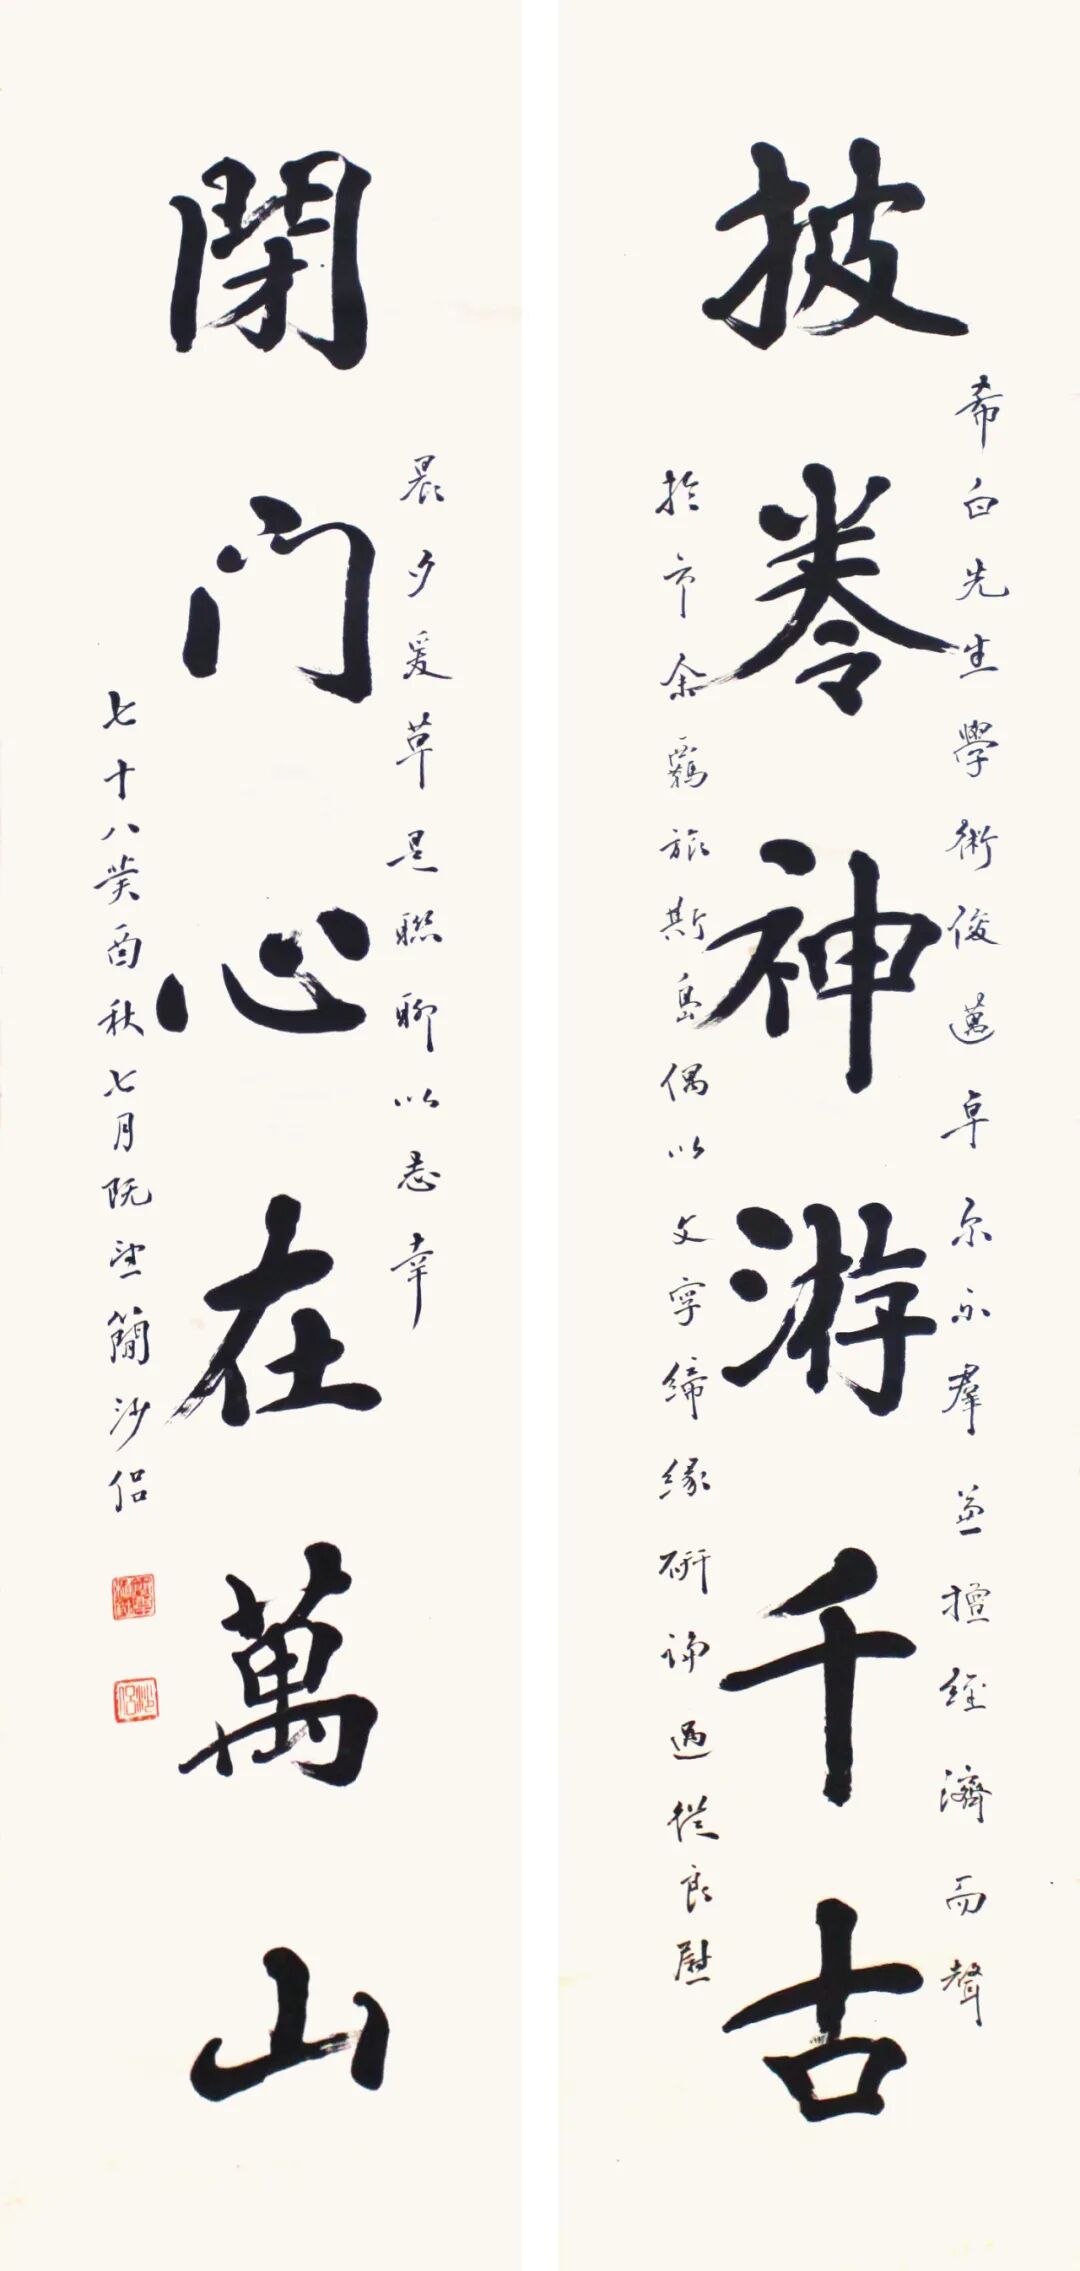 披卷神游千古
希白先生學術俊邁卓尔不羣並擅經濟而聲
於市余羈旅斯島偶以文字締緣研論過從良慰
閉门心在萬山
晨夕爰草是聯聊以志幸
七十八癸酉秋七月既望簡沙侣
沙侣